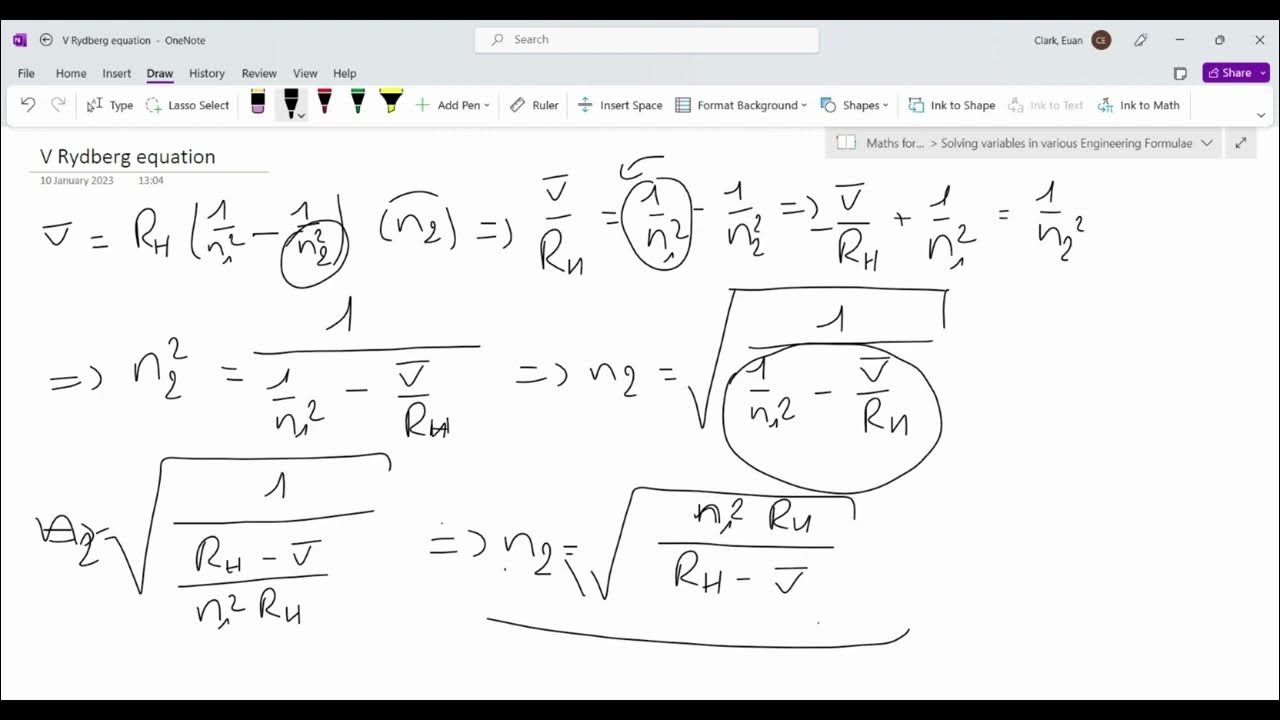 V Rydberg equation - OneNote
Search
Clark, Euan CE
File Home Insert Draw History Review View Help
Share
Type Lasso Select Add Pen Ruler Insert Space Format Background Shapes Ink to Shape Ink to Text Ink to Math
V Rydberg equation
Maths for... > Solving variables in various Engineering Formulae
10 January 2023 13:04
v̅ = R_H (1/n₁² − 1/n₂²) (n₂) => v̅/R_H = 1/n₁² − 1/n₂² => −v̅/R_H + 1/n₁² = 1/n₂²
=> n₂² = 1/(1/n₁² − v̅/R_H) => n₂ = √(1/(1/n₁² − v̅/R_H))
n₂ = √(1/((R_H − v̅)/(n₁² R_H))) => n₂ = √(n₁² R_H/(R_H − v̅))